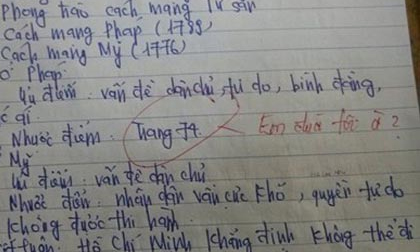 Phong trào cách mạng tư sản
Cách mạng Pháp (1789)
Cách mạng Mỹ (1776)
Ở Pháp:
Ưu điểm: vấn đề dân chủ, tự do, bình đẳng,
ác ái
Nhược điểm: Trang 74. Em đuổi tôi à?
Mỹ
Ưu điểm: vấn đề dân chủ
Nhược điểm: nhân dân vẫn cực khổ, quyền tự do
không được thi hành
Hồ Chí Minh khẳng định không thể đi